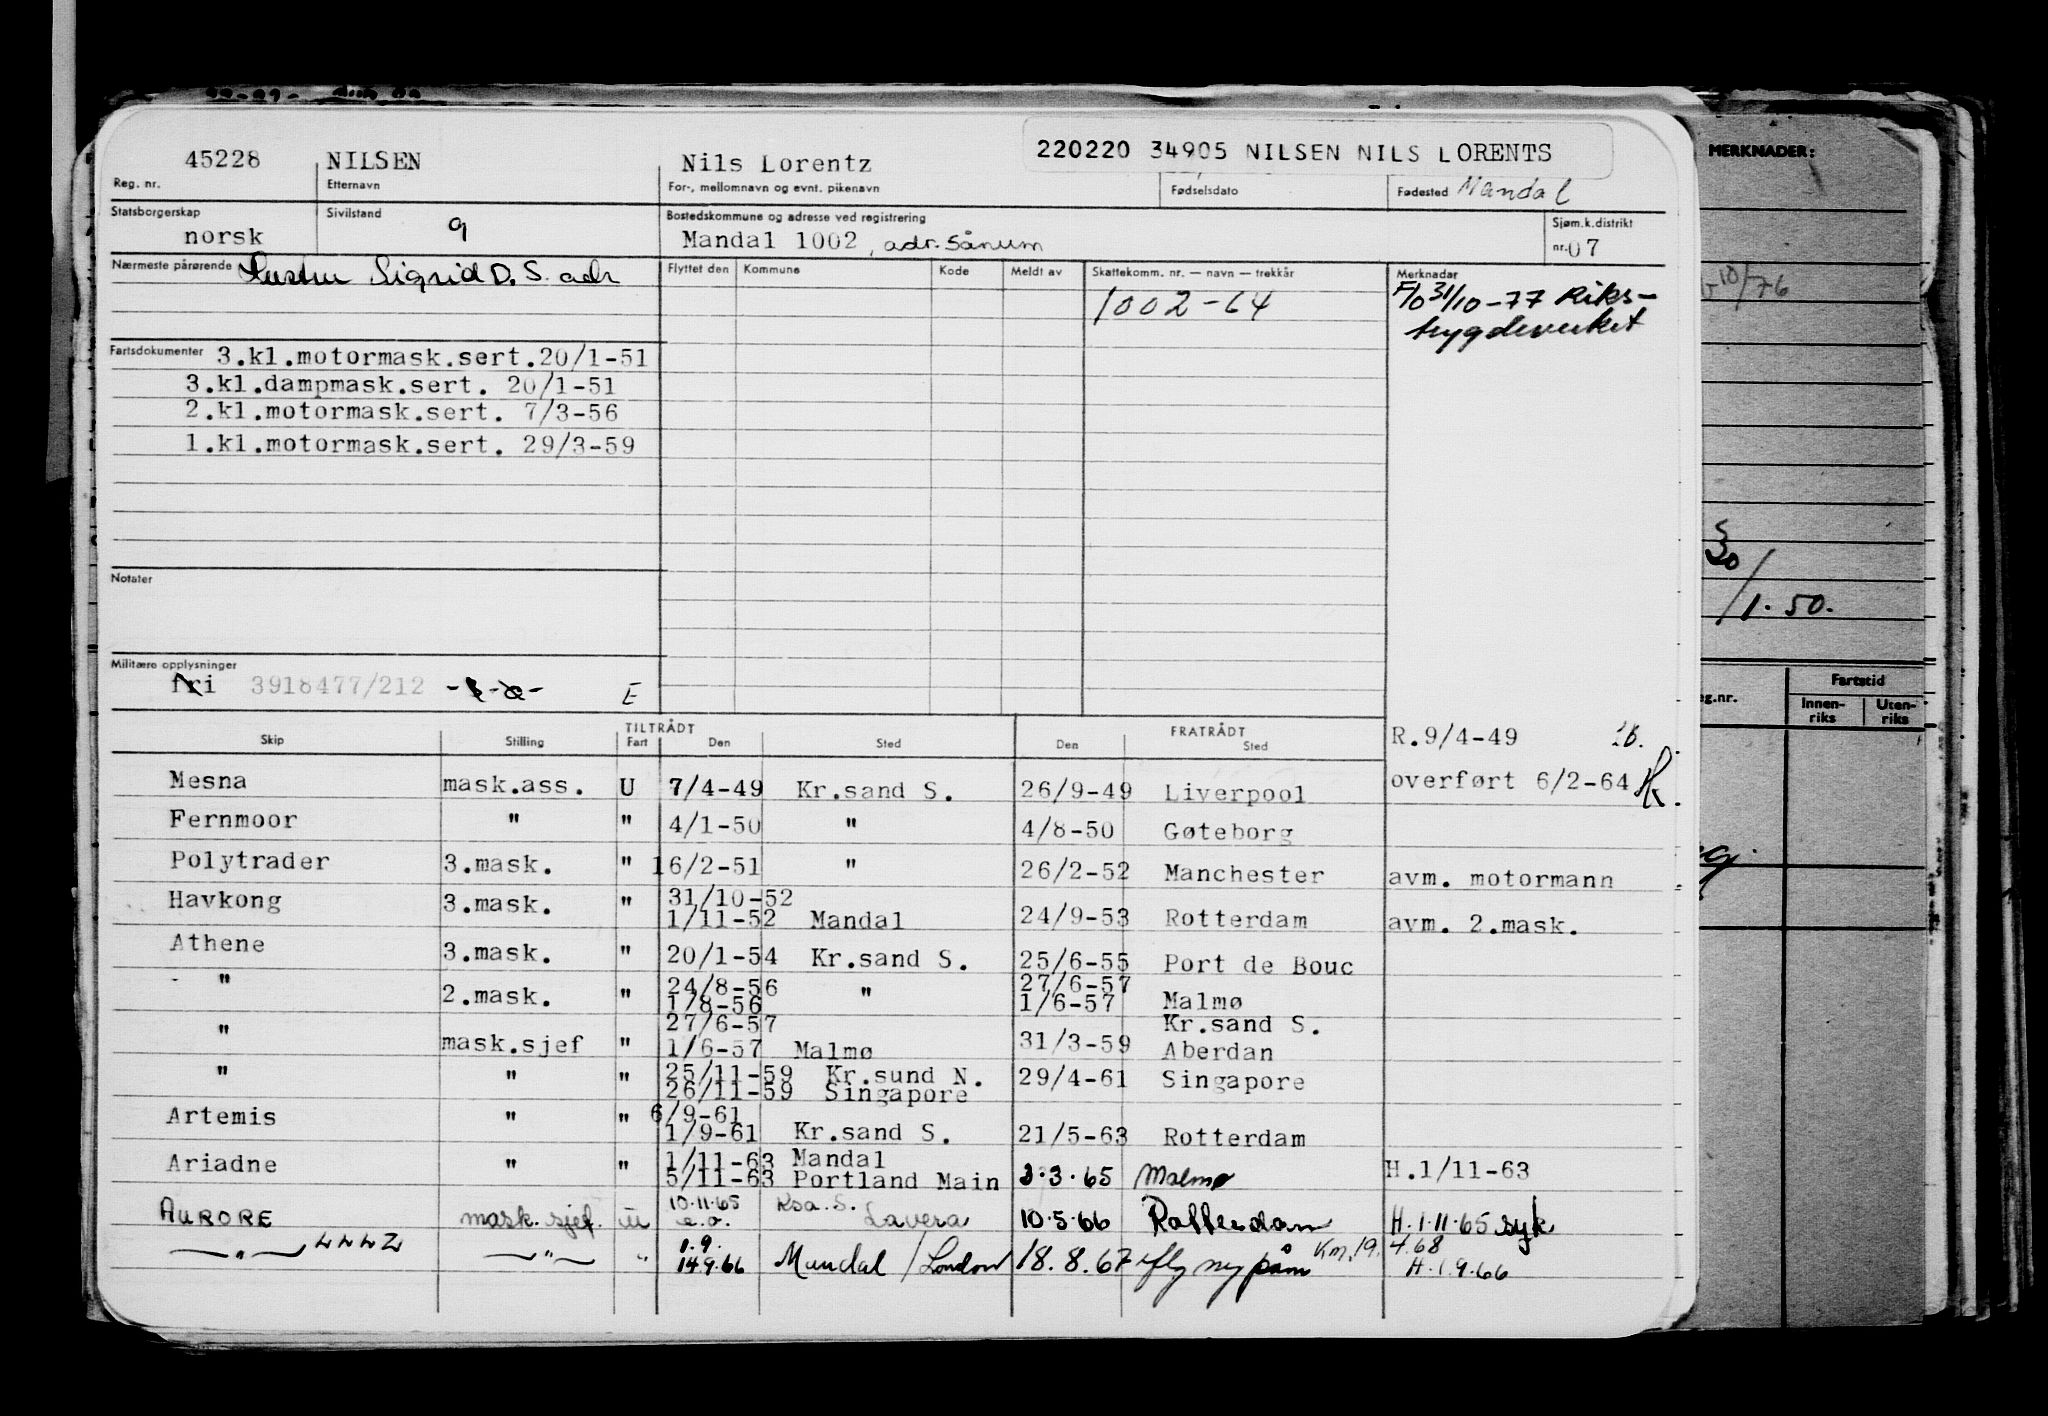 220220 34905 NILSEN NILS LORENTS
MERKNADER:
45228 NILSEN Nils Lorentz
Reg. nr. Etternavn For-, mellomnavn og evnt. pikenavn Fødselsdato Fødested Mandal
Statsborgerskap Sivilstand Bostedskommune og adresse ved registrering Sjøm.k.distrikt
norsk g Mandal 1002, adr. Sånum nr. 07
Nærmeste pårørende Sigrid D. S. adr Flyttet den Kommune Kode Meldt av Skattekomm. nr. — navn — trekkår Merknader
1002-64 F/o 31/10-77 Riks-
trygdeverket
Fartsdokumenter 3.kl.motormask.sert.20/1-51
3.kl.dampmask.sert. 20/1-51
2.kl.motormask.sert. 7/3-56
1.kl.motormask.sert. 29/3-59
Notater
/1.50.
Militære opplysninger
fri 3918477/212 E
Fartstid
Innen-riks Uten-riks
TILTRÅDT FRATRÅDT R.9/4-49
Skip Stilling Fart Den Sted Den Sted
overført 6/2-64
Mesna mask.ass. U 7/4-49 Kr.sand S. 26/9-49 Liverpool
Fernmoor " " 4/1-50 " 4/8-50 Gøteborg
Polytrader 3.mask. " 16/2-51 " 26/2-52 Manchester avm. motormann
31/10-52
Havkong 3.mask. " 1/11-52 Mandal 24/9-53 Rotterdam avm. 2.mask.
Athene 3.mask. " 20/1-54 Kr.sand S. 25/6-55 Port de Bouc
24/8-56 27/6-57
" 2.mask. " 1/8-56 " 1/6-57 Malmø
27/6-57 Kr.sand S.
" mask.sjef " 1/6-57 Malmø 31/3-59 Aberdan
25/11-59 Kr.sund N.
" " " 26/11-59 Singapore 29/4-61 Singapore
6/9-61
Artemis " " 1/9-61 Kr.sand S. 21/5-63 Rotterdam
1/11-63 Mandal
Ariadne " " 5/11-63 Portland Main 3.3.65 Malmø H.1/11-63
10.11.65 Ksa. S.
AURORE mask. sjef. u e.o. Lavera 10.5.66 Rotterdam H.1.11.65 syk
1.9. Km. 19. 4.68
—"— LLLZ —"— " 14.9.66 Mandal / London 18.8.67 ny påm H.1.9.66